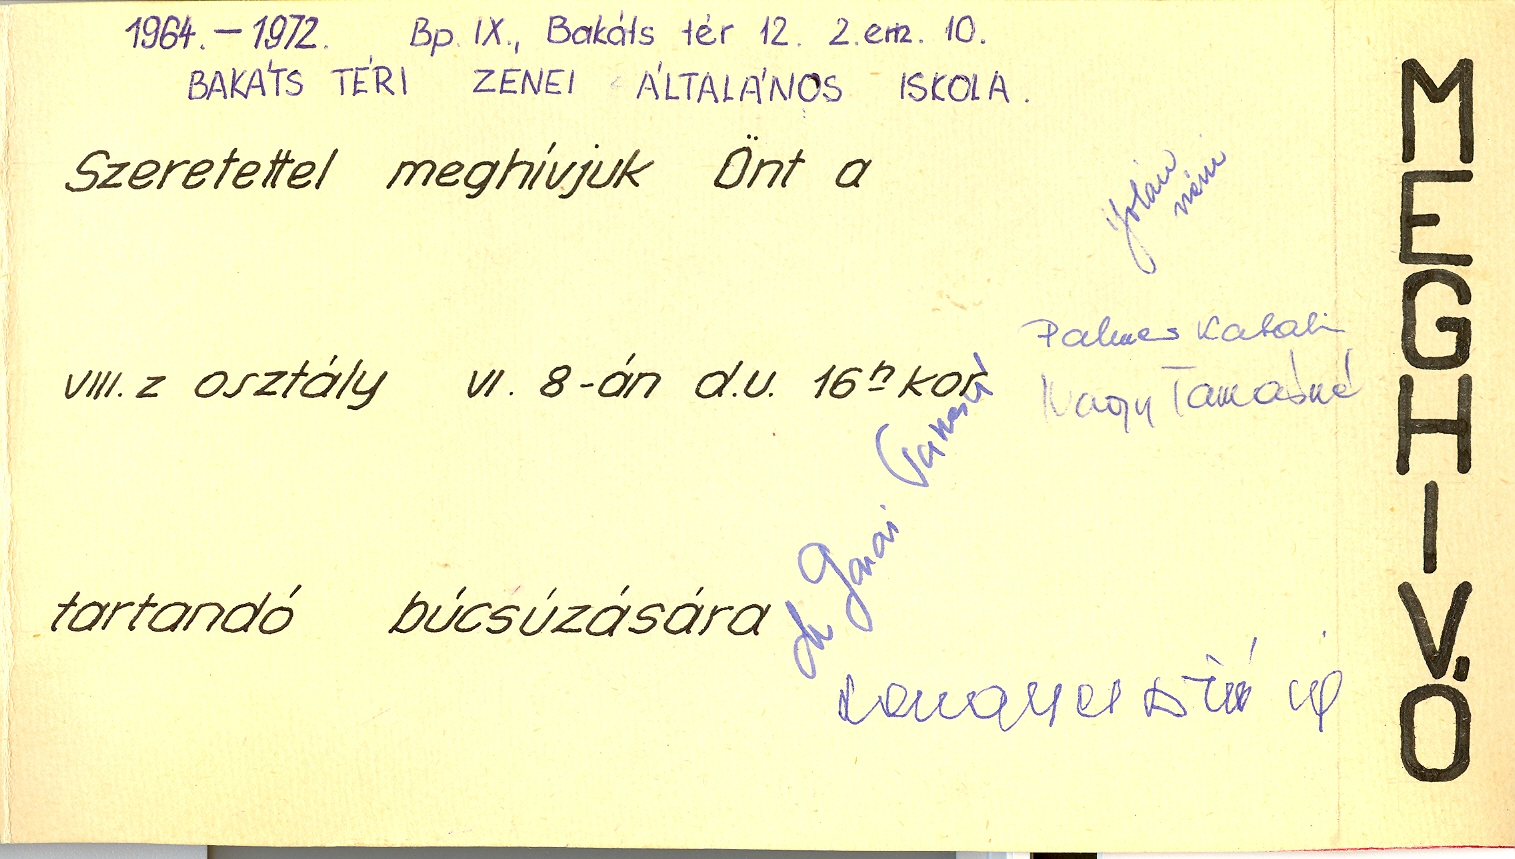 1964.-1972. Bp. IX., Bakáts tér 12. 2.em. 10.
BAKÁTS TÉRI ZENEI ÁLTALÁNOS ISKOLA.
Szeretettel meghívjuk Önt a
VIII. z osztály VI. 8-án d.u. 16h kor
tartandó búcsúzására
Jolán
néni
Katalin
Nagy Tamásné
MEGHIVÓ